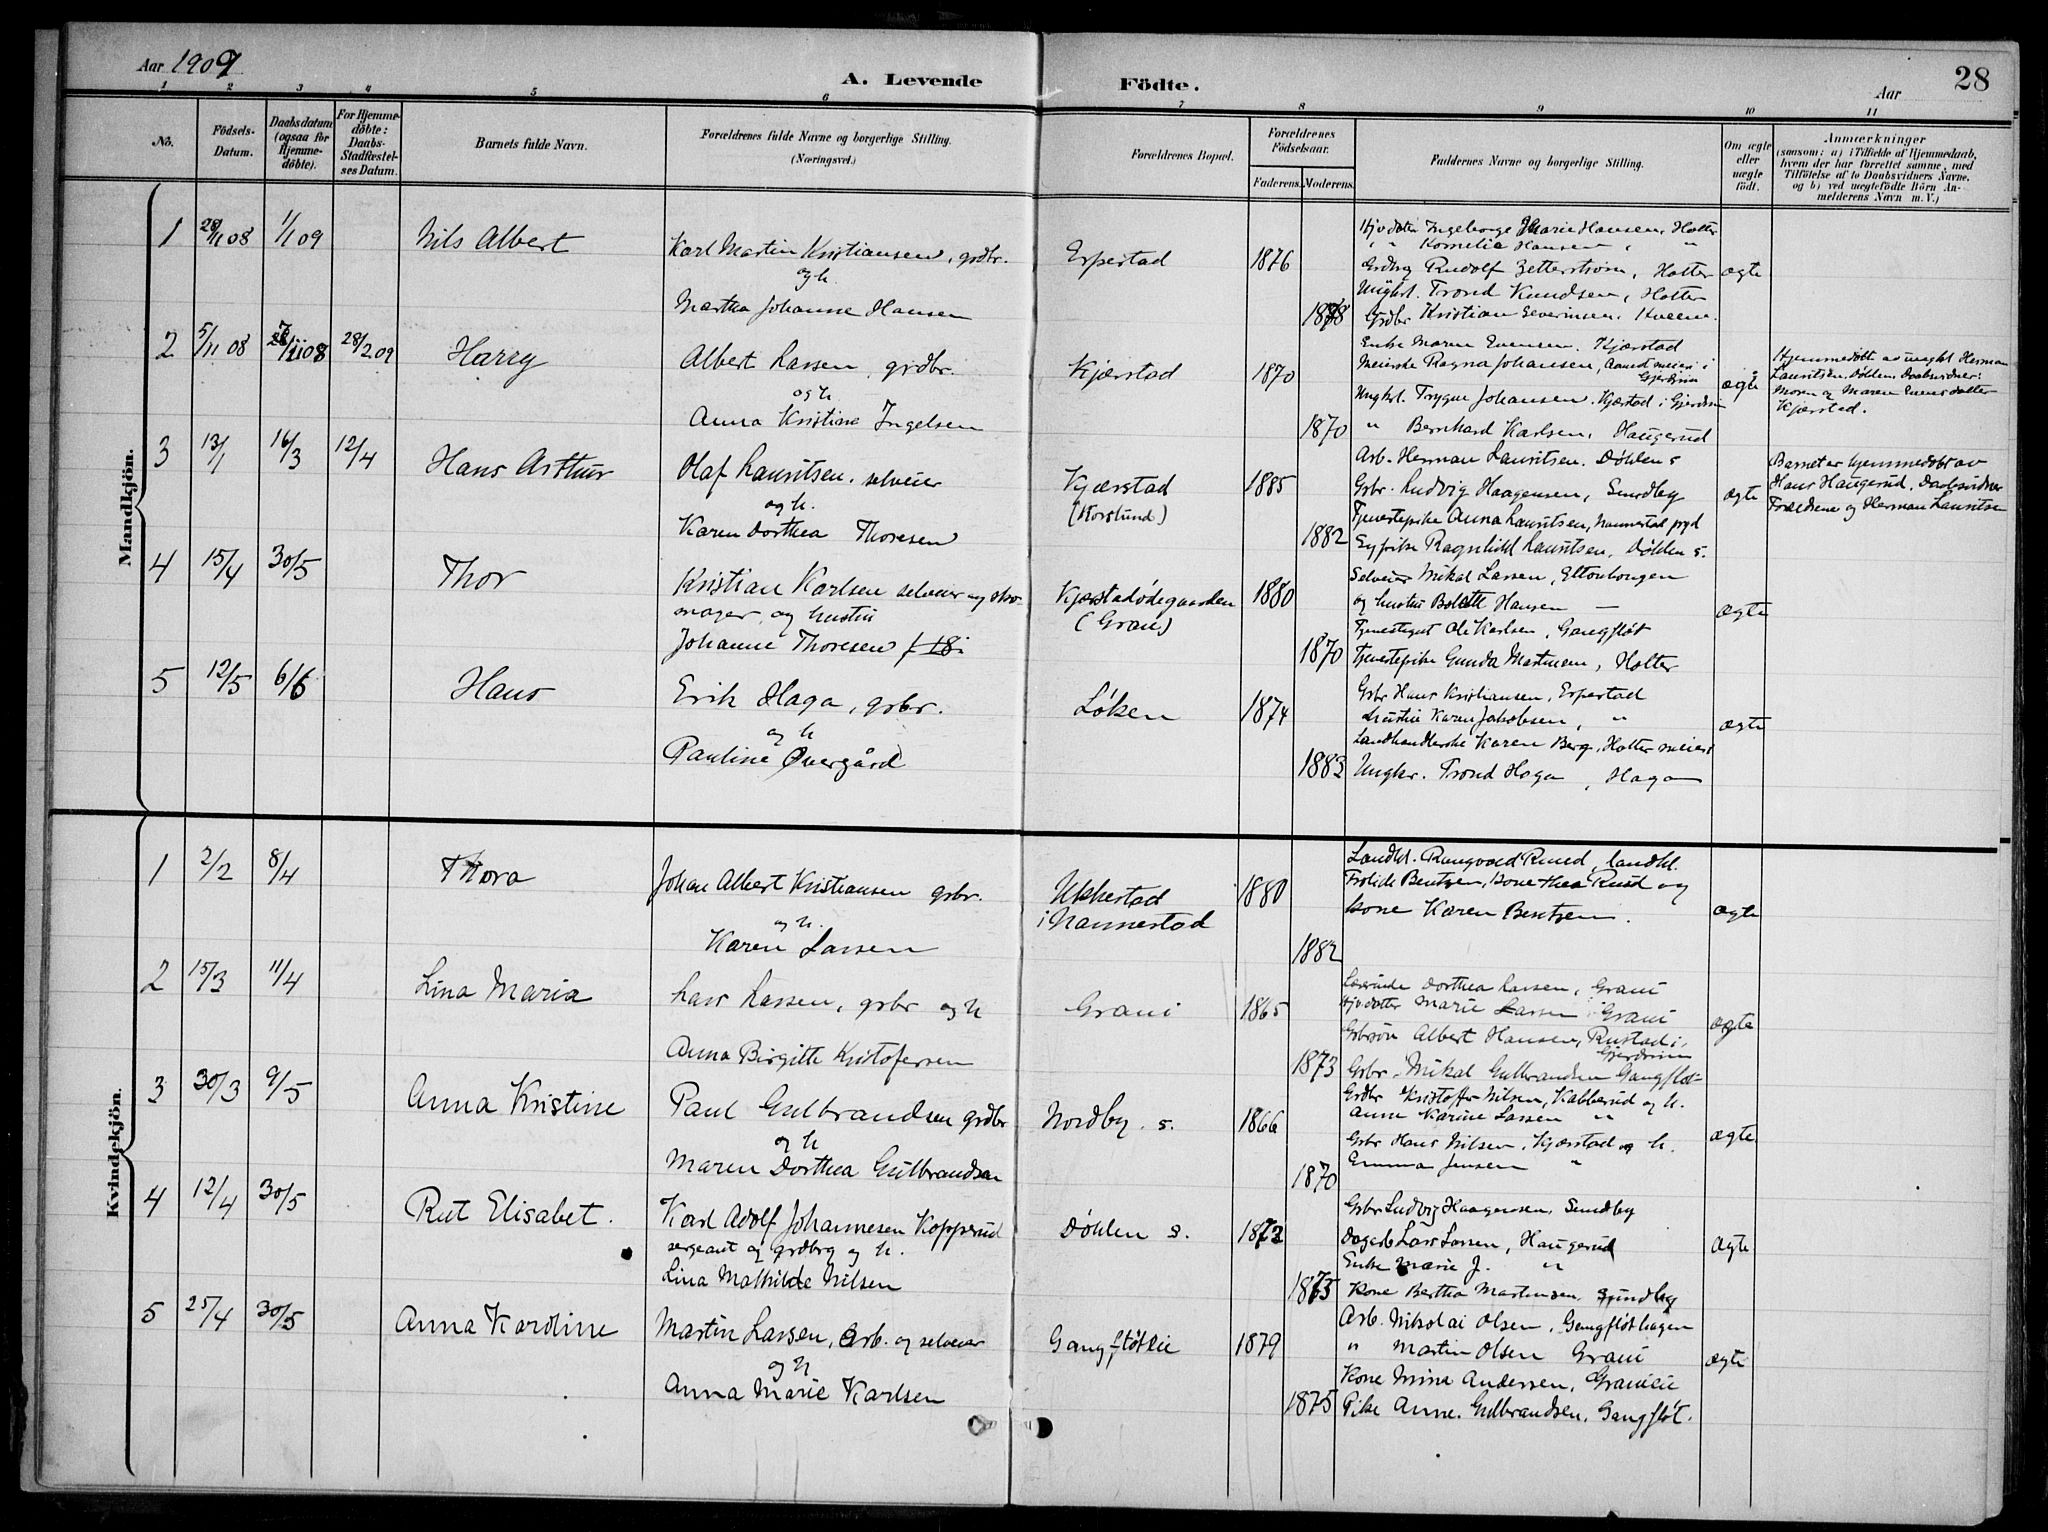 Aar 1909
A. Levende Födte.
Aar
28
1 2 3 4 5 6 7 8 9 10 11
No.
Födsels-Datum.
Daabsdatum (ogsaa for Hjemme-döbte).
For Hjemme-döbte: Daabs-Stadfæstel-ses Datum.
Barnets fulde Navn.
Forældrenes fulde Navne og borgerlige Stilling.
(Næringsvei.)
Forældrenes Bopæl.
Forældrenes Födselsaar.
Faderens. Moderens.
Faddernes Navne og borgerlige Stilling.
Om ægte eller uægte födt.
Anmærkninger
(saasom: a) i Tilfælde af Hjemmedaab,
hvem der har forrettet samme, med
Tilföielse af to Daabsvidners Navne,
og b) ved uægtefödte Börn An-
melderens Navn m. V.)
Mandkjön.
1 28/11 08 1/1 09 Nils Albert
Karl Martin Kristiansen, grdbr.
og h.
Martha Johanne Hansen
Erpestad 1876 1878
Hjv dater Ingeborge Marie Hansen, Holter
" " Kornelia Hansen, "
Grdbrg Rudolf Zetterstrøm, Holter
Ungkrl. Trond Knudsen, Holter
Grdbr Kristian Severinsen, Kveen.
ægte
2 5/11 08 28/2 09 Harry
Albert Larsen, grdbr.
og h
Anna Kristine Ingelsen
Kjærstad 1870 1870
Enke Maren Evensen. Kjærstad
Meierske Ragna Johansen, Aamod meieri i Gjerdrum
Ungkrl. Trygve Johansen. Kjærstad i Gjerdrum
" Bernhard Karlsen, Haugerud
Arb. Herman Lauritsen. Døhlen s
ægte
Hjemmedøbt av ungkl Herman
Lauritsen, Døhlen. Daabsvidner:
Moren og Maren Evensdatter
Kjærstad.
3 13/1 16/3 12/4 Hans Arthur
Olaf Lauritsen. selveier
og h.
Karen Dorthea Thoresen
Kjærstad
(Korslund)
1885 1882
Gsbr. Ludvig Haagensen, Sundby
Tjenestepike Anna Lauritsen, Nannestad prgd
Sypike Ragnhild Lauritsen, Døhlen s.
ægte
Barnet er hjemmedøbt av
Hans Haugerud, Daabsvidner
Forældrene og Herman Lauritsen
4 15/4 30/5 Thor
Kristian Karlsen selveier og sko-
mager, og hustru
Johanne Thoresen
Kjærstadødegaarden
(Gran)
1880 1870
Selveier Mikal Larsen, Eltonbongen
og hustru Bolette Hansen —
Tjenestegut Ole Karlsen, Gangfløt
Tjenestepike Gunda Martinsen, Holter
ægte
5 12/5 6/6 Hans
Erik Haga, gsbr.
og h
Pauline Øvergård
Løken 1874 1883
Gsbr Hans Kristiansen, Erpestad
Hustru Karen Jakobsen, "
Landhandlerske Karen Berg, Holter meieri
Ungkr. Trond Haga, Haga
ægte
Kvindekjön.
1 2/2 8/4 Thora
Johan Albert Kristiansen gsbr.
og h.
Karen Larsen
Ukkestad
i Nannestad
1880 1882
Landhl. Rangvald Ruud, landhl.
Frolide Bentzen, kone Thea Ruud og
kone Karen Bentzen.
ægte
2 15/3 11/4 Lina Maria
Lars Larsen, gsbr og h
Anna Birgitte Kristofersen
Grani 1865 1873
Lærerinde Dorthea Larsen, Grani
Hjv datter Marie Larsen Grani
Gsbrsøn Albert Hansen, Rustad i
Gjerdrum
Gsbr. Mikal Gulbrandsen Gangfløt
ægte
3 30/3 9/5 Anna Kristine
Paul Gulbrandsen grdbr
og h
Maren Dorthea Gulbrandsen
Nordby. s. 1866 1870
Grdbr Kristoffer Nilsen, Kabberud og h.
Anne Karine Larsen "
Gsbr Hans Nilsen, Kjærstad og h.
Emma Jensen "
ægte
4 12/4 30/5 Rut Elisabet.
Karl Adolf Johannesen Kopperud
sergeant og grdbrg og h.
Lina Mathilde Nilsen
Døhlen s. 1873 1875
Gsbr Ludvig Haagensen, Sundby
Dagarb Lars Larsen, Haugerud
Enke Marie J. "
Kone Bertha Martinsen, Sundby
ægte
5 25/4 30/5 Anna Karoline
Martin Larsen, Arb. og selveier
og h
Anna Marie Karlsen
Gangfløteie 1879 1875
Arb. Nikolai Olsen, Gangfløthagen
" Martin Olsen Grani
Kone Mina Andersen, Granieie
Pike Anne Gulbrandsen, Gangfløt.
ægte